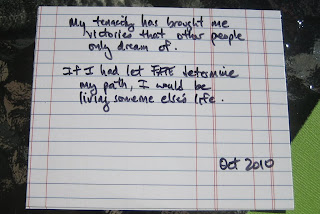 My tenacity has brought me
victories that other people
only dream of.
If I had let FATE determine
my path, I would be
living someone else's life.
Oct 2010